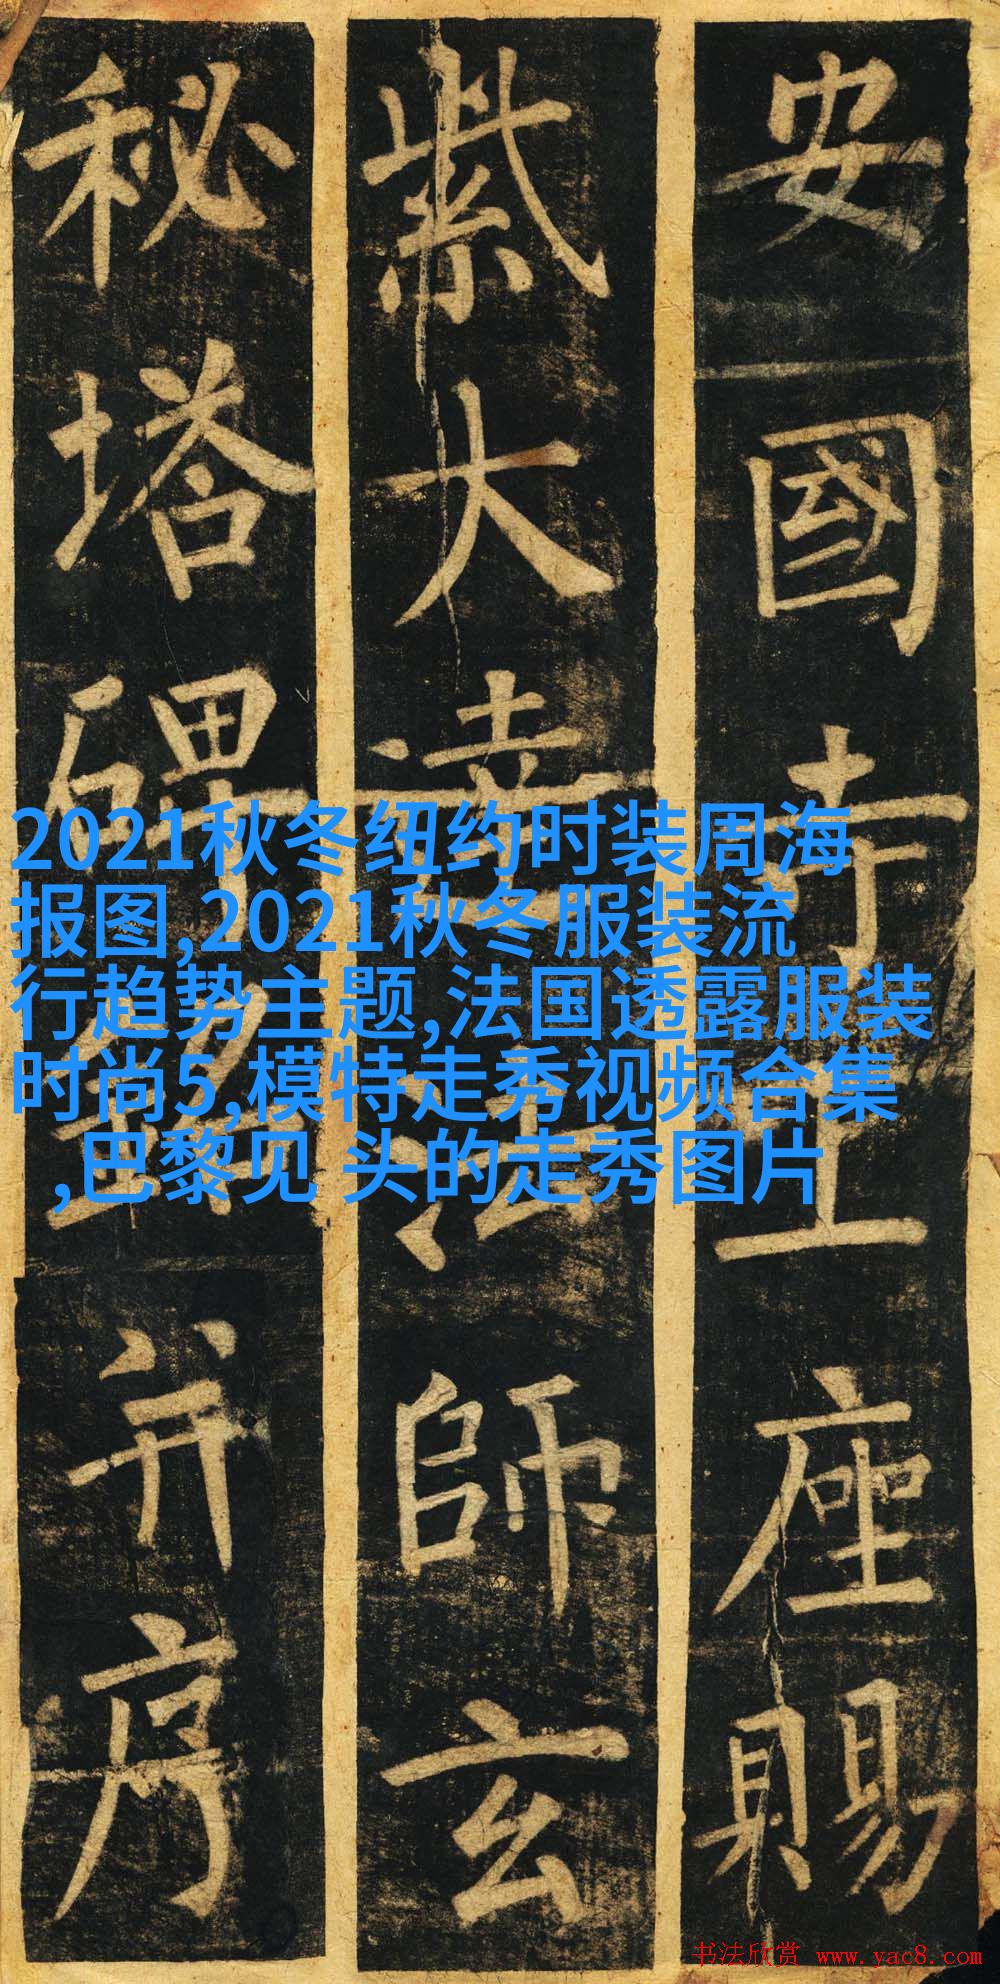 安國寺上座賜
紫大達法師玄
秘塔碑銘并序
2021秋冬纽约时装周海
报图,2021秋冬服装流
行趋势主题,法国透露服装
时尚5,模特走秀视频合集
,巴黎见 头的走秀图片
书法欣赏 www.yac8.com